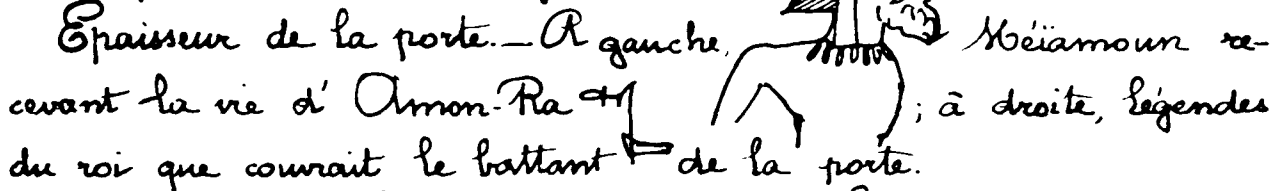 Epaisseur de la porte. _ A gauche, Méïamoun re-
cevant la vie d'Amon-Ra ; à droite, légendes
du roi que couvrait le battant de la porte.